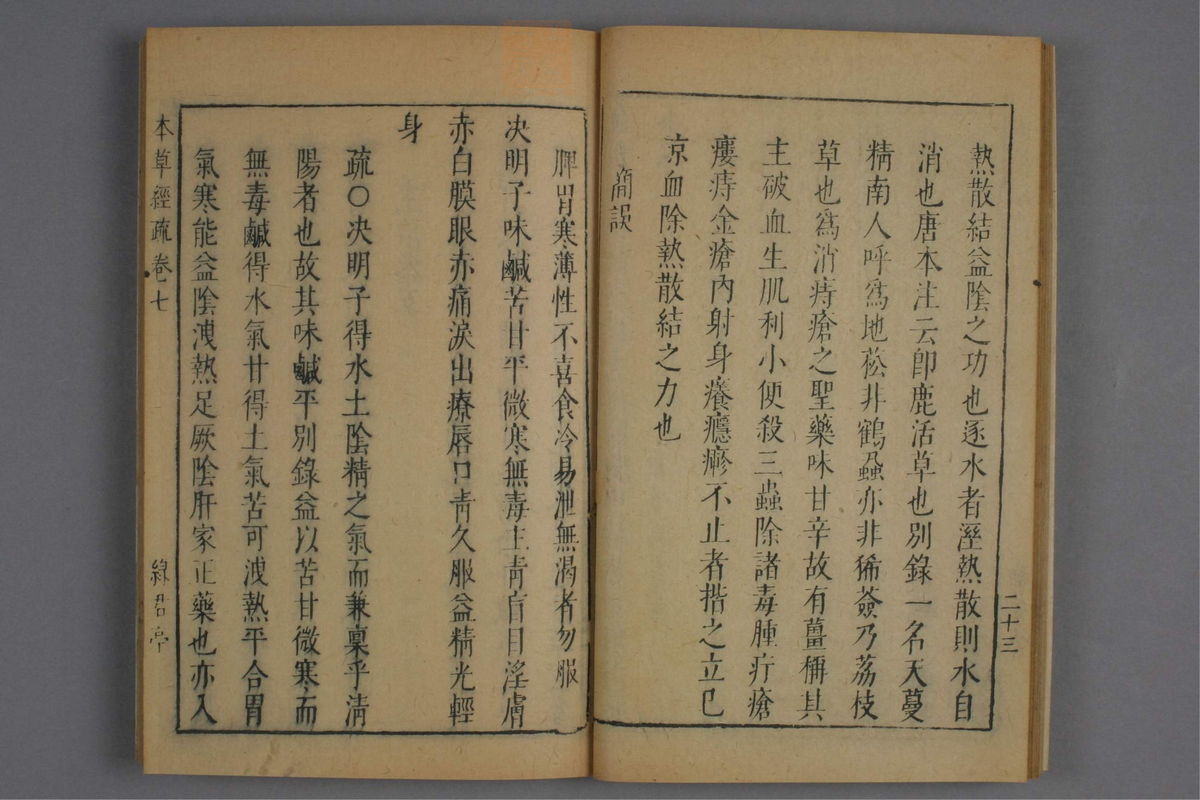 熱散結益陰之功也逐水者溼熱散則水自
消也唐本注云卽鹿活草也別錄一名天蔓
精南人呼爲地菘非鶴蝨亦非豨薟乃荔枝
草也爲消痔瘡之聖藥味甘辛故有薑稱其
主破血生肌利小便殺三蟲除諸毒腫疔瘡
瘻痔金瘡內射身癢癮瘮不止者揩之立已
凉血除熱散結之力也
簡誤
二十三
脾胃寒薄性不喜食冷易泄無渴者勿服
决明子味鹹苦甘平微寒無毒主靑盲目淫膚
赤白膜眼赤痛淚出療唇口靑久服益精光輕
身
疏〇决明子得水土陰精之氣而兼稟乎淸
陽者也故其味鹹平別錄益以苦甘微寒而
無毒鹹得水氣甘得土氣苦可洩熱平合胃
氣寒能益陰洩熱足厥陰肝家正藥也亦入
本草經疏卷七
綠君亭